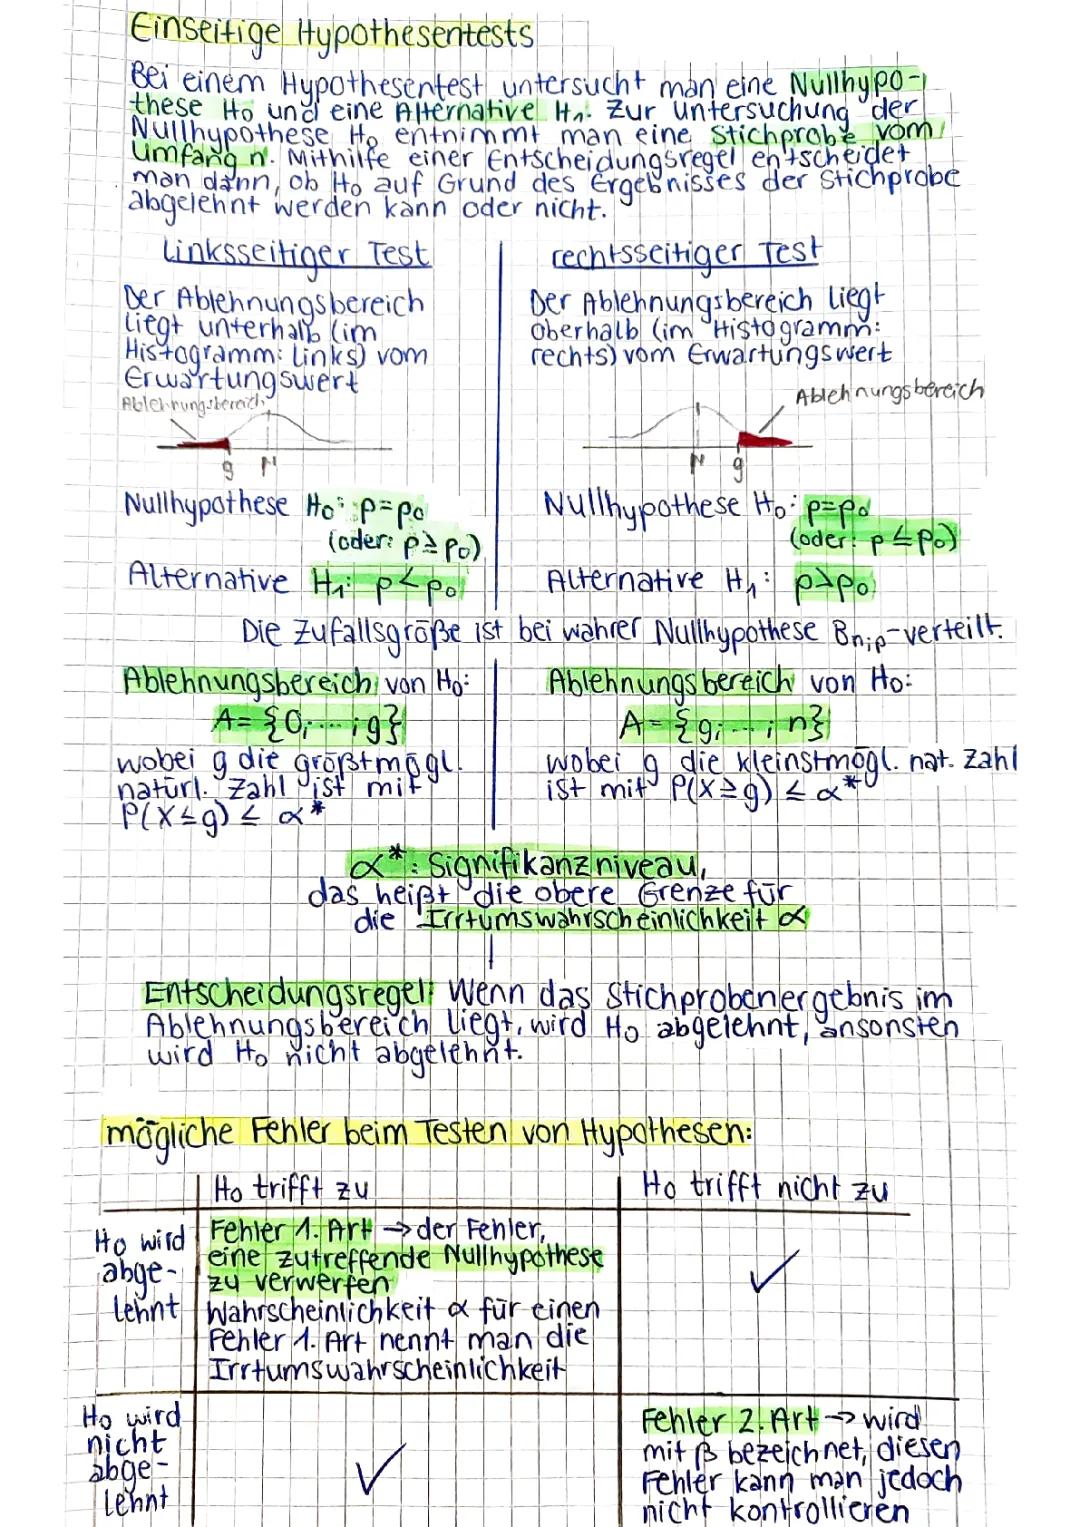 Einseitige Hypothesentests
Bei einem Hypothesentest untersucht man eine Nullhypo-
these H₀ und eine Alternative H₁. Zur Untersuchung der
Nullhypothese H₀ entnimmt man eine Stichprobe vom
Umfang n. Mithilfe einer Entscheidungsregel entscheidet
man dann, ob H₀ auf Grund des Ergebnisses der Stichprobe
abgelehnt werden kann oder nicht.
linksseitiger Test
Der Ablehnungsbereich
liegt unterhalb (im
Histogramm: links) vom
Erwartungswert
Ablehnungsbereich
g μ
Nullhypothese H₀: p=p₀
(oder: p≥p₀)
Alternative H₁: p<p₀
rechtsseitiger Test
Der Ablehnungsbereich liegt
oberhalb (im Histogramm:
rechts) vom Erwartungswert
Ablehnungsbereich
μ g
Nullhypothese H₀: p=p₀
(oder: p≤p₀)
Alternative H₁: p>p₀
Die Zufallsgröße ist bei wahrer Nullhypothese Bn;p-verteilt.
Ablehnungsbereich von H₀:
A={0;...;g}
wobei g die größtmögl.
natürl. Zahl ist mit
P(X≤g) ≤ α*
Ablehnungsbereich von H₀:
A={g;...;n}
wobei g die kleinstmögl. nat. Zahl
ist mit P(X≥g) ≤ α*
α*: Signifikanzniveau,
das heißt die obere Grenze für
die Irrtumswahrscheinlichkeit α
Entscheidungsregel: Wenn das Stichprobenergebnis im
Ablehnungsbereich liegt, wird H₀ abgelehnt, ansonsten
wird H₀ nicht abgelehnt.
mögliche Fehler beim Testen von Hypothesen:
H₀ trifft zu
H₀ trifft nicht zu
H₀ wird
abge-
lehnt
Fehler 1. Art → der Fehler,
eine zutreffende Nullhypothese
zu verwerfen
Wahrscheinlichkeit α für einen
Fehler 1. Art nennt man die
Irrtumswahrscheinlichkeit
✓
H₀ wird
nicht
abge-
lehnt
✓
Fehler 2. Art → wird
mit β bezeichnet, diesen
Fehler kann man jedoch
nicht kontrollieren